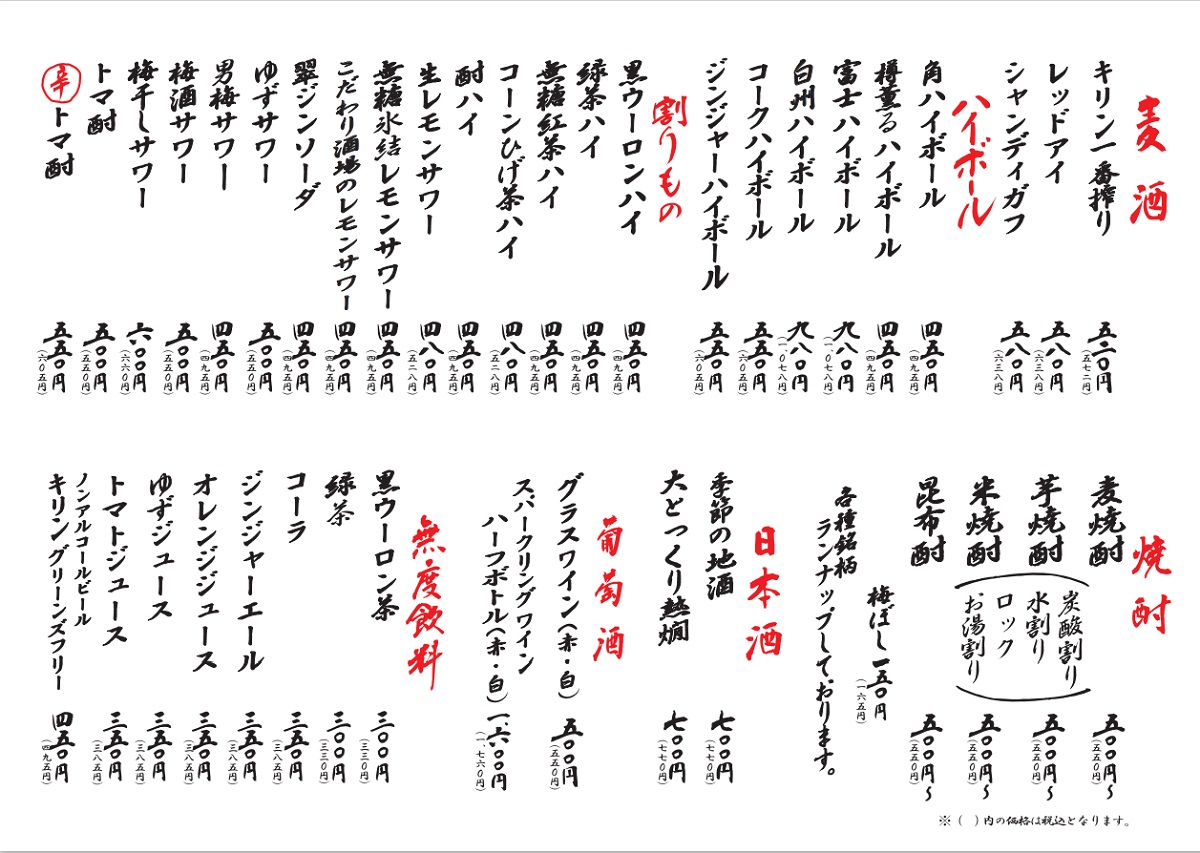 麦酒
キリン一番搾り 五二〇円 (五七二円)
レッドアイ 五八〇円 (六三八円)
シャンディガフ 五八〇円 (六三八円)
ハイボール
角ハイボール 四五〇円 (四九五円)
樽薫るハイボール 四五〇円 (四九五円)
富士ハイボール 九八〇円 (一、〇七八円)
白州ハイボール 九八〇円 (一、〇七八円)
コークハイボール 五五〇円 (六〇五円)
ジンジャーハイボール 五五〇円 (六〇五円)
割りもの
黒ウーロンハイ 四五〇円 (四九五円)
緑茶ハイ 四五〇円 (四九五円)
無糖紅茶ハイ 四五〇円 (四九五円)
コーンひげ茶ハイ 四八〇円 (五二八円)
酎ハイ 四五〇円 (四九五円)
生レモンサワー 四八〇円 (五二八円)
無糖氷結レモンサワー 四五〇円 (四九五円)
こだわり酒場のレモンサワー 四五〇円 (四九五円)
翠ジンソーダ 四五〇円 (四九五円)
ゆずサワー 五〇〇円 (五五〇円)
男梅サワー 四五〇円 (四九五円)
梅酒サワー 五〇〇円 (五五〇円)
梅干しサワー 六〇〇円 (六六〇円)
トマ酎 五〇〇円 (五五〇円)
辛トマ酎 五五〇円 (六〇五円)
焼酎
麦焼酎 五〇〇円〜 (五五〇円)
芋焼酎 五〇〇円〜 (五五〇円)
米焼酎 五〇〇円〜 (五五〇円)
昆布酎 五〇〇円〜 (五五〇円)
(炭酸割り
水割り
ロック
お湯割り)
梅ぼし 一五〇円 (一六五円)
各種銘柄
ランナップしております。
日本酒
季節の地酒 七〇〇円 (七七〇円)
大とっくり熱燗 七〇〇円 (七七〇円)
葡萄酒
グラスワイン(赤・白) 五〇〇円 (五五〇円)
スパークリングワイン
ハーフボトル(赤・白) 一、六〇〇円 (一、七六〇円)
無度飲料
黒ウーロン茶 三〇〇円 (三三〇円)
緑茶 三〇〇円 (三三〇円)
コーラ 三五〇円 (三八五円)
ジンジャーエール 三五〇円 (三八五円)
オレンジジュース 三五〇円 (三八五円)
ゆずジュース 三五〇円 (三八五円)
トマトジュース 三五〇円 (三八五円)
ノンアルコールビール
キリングリーンズフリー 四五〇円 (四九五円)
※( )内の価格は税込となります。